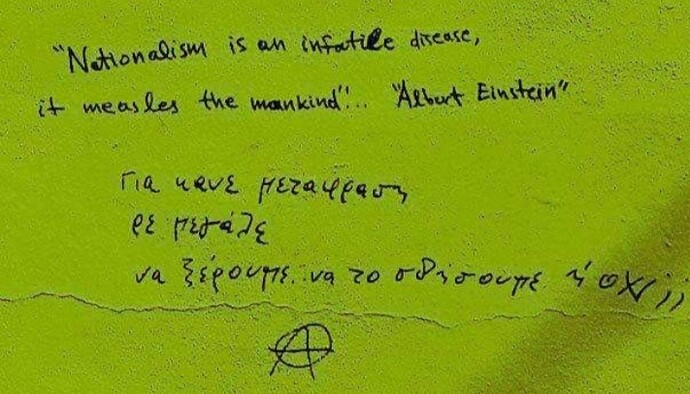 "Nationalism is an infatile disease,
it measles the mankind"!.. "Albert Einstein"
Για κανε μεταφραση
ρε μεγάλε
να ξέρουμε.. να το σβήσουμε ή οχι;;